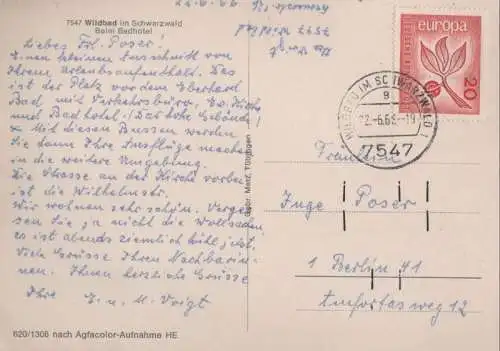 7547 Wildbad im Schwarzwald
Beim Badhotel
22.6.66
7547 Wildbad
Liebes Frl. Poser!
Einen kleinen Ausschnitt von
Ihrem Urlaubsaufenthalt. Das
ist der Platz vor dem Eberhard
Bad mit Verkehrsbüro, Ev. Kirche
und Badhotel. Das hohe Gebäude!
x Mit diesen Bussen werden
Sie dann Ihre Ausflüge machen
in die weitere Umgebung.
Die Strasse an der Kirche vorbei
ist die Wilhelmstr.
Wir wohnen sehr schön. Verges-
sen Sie ja nicht die Wollsachen,
es ist abends ziemlich kühl jetzt.
Viele Grüsse Ihren Nachbarin-
nen. Ihnen herzliche Grüsse
Ihre E. u. M. Voigt
620/1306 nach Agfacolor-Aufnahme HE
Gebr. Metz, Tübingen
europa
20
WILDBAD IM SCHWARZWALD
a
22.-6.66-19
7547
Fräulein
Inge Poser
1 Berlin 41
Amfortasweg 12